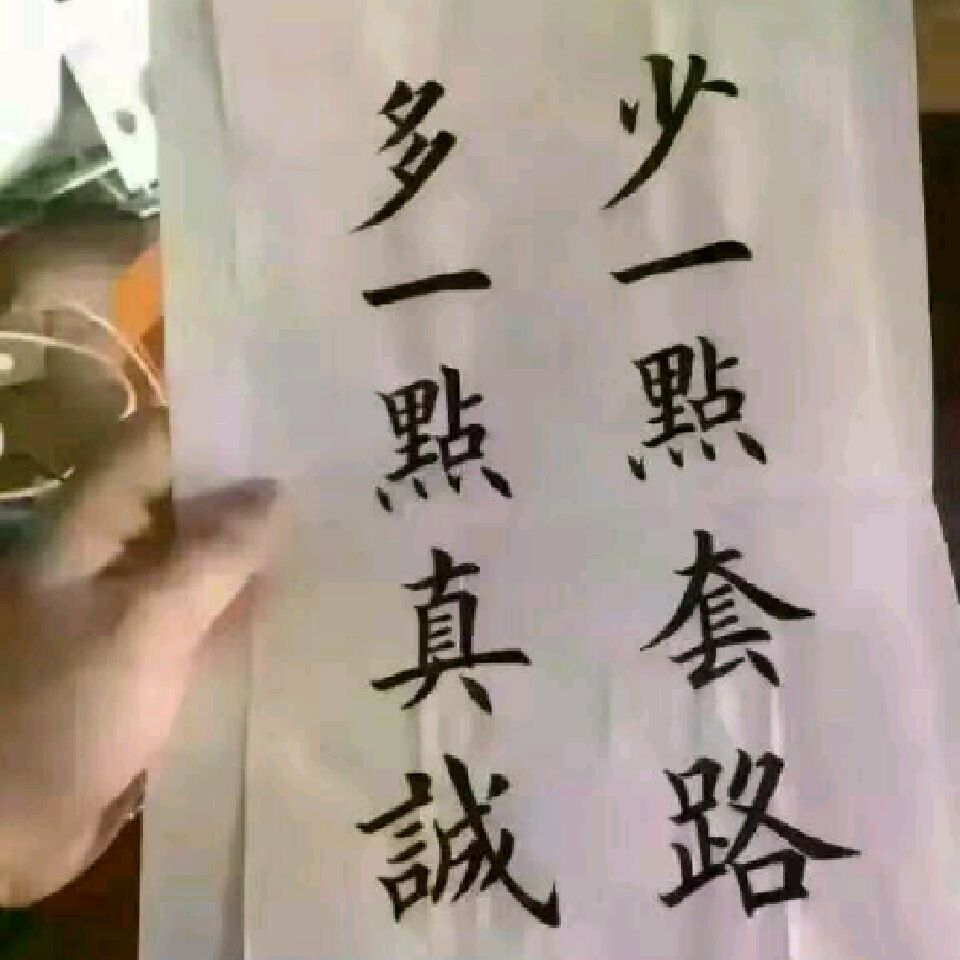 少一點套路
多一點真誠